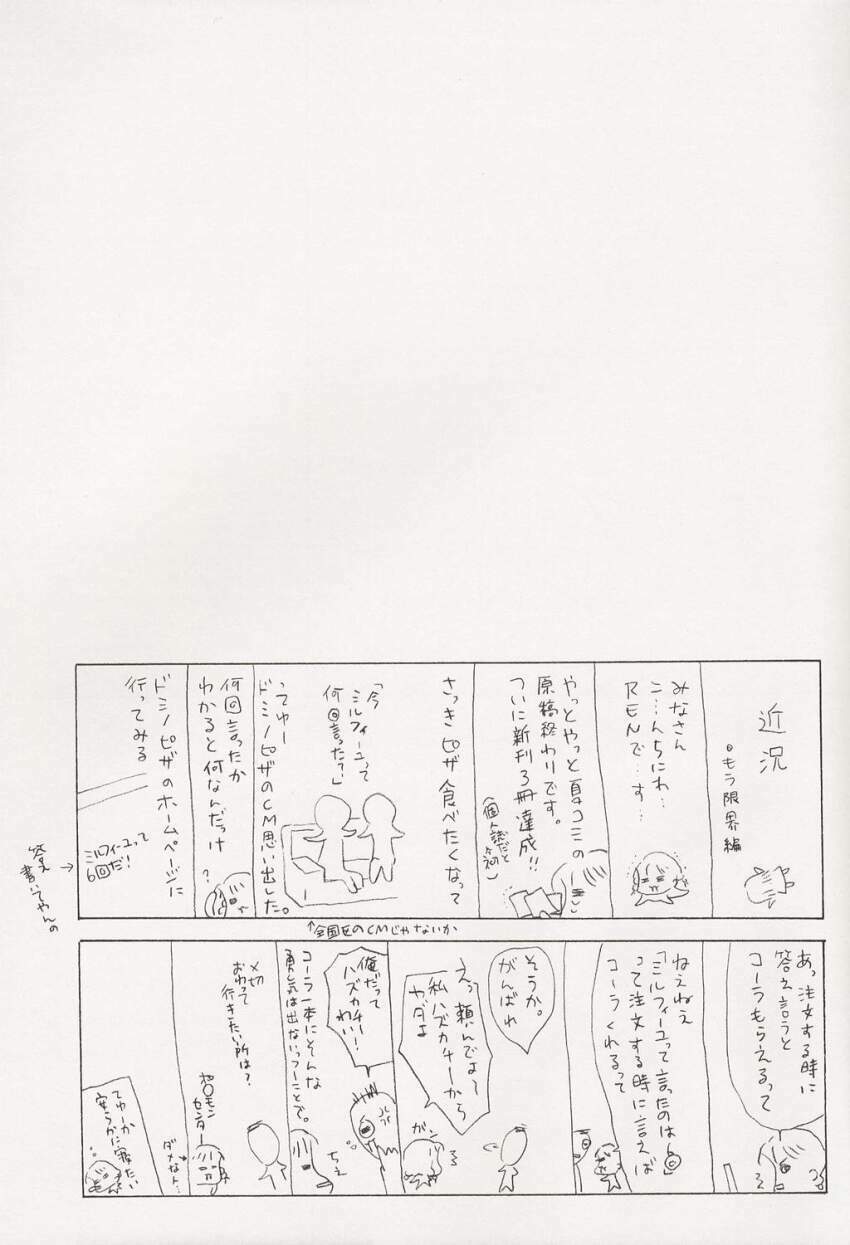 近況
•もう限界編
みなさん
こ…んちにわ…
RENで…す…
やっとやっと夏コミの
原稿終わりです。
ついに新刊3冊達成!!
(個人誌だと
さっきピザ食べたくなって
「今
ミルフィーユって
何回言った?」
ってゆー
ドミノピザのCM思い出した。
↑全国区のCMじゃないか
何回言ったか
わかると何なんだっけ?
ドミノピザのホームページに
行ってみる
ミルフィーユって
6回だ!
答え
書いてやんの
あっ注文する時に
答え言うと
コーラもらえるって
ねえねえ
「ミルフィーユって言ったのは6回」
って注文する時に言えば
コーラくれるって
そうか。
がんばれ
えっ頼んでよ〜
私ハズカチーから
ヤダよ
ガン
俺だって
ハズカチー
わい!
ちぇ
コーラ一本にそんな
勇気は出ないっつーことで。
〆切
おわって
行きたい所は?
センター
ダメなト…
てゆーか
安らかに寝たい